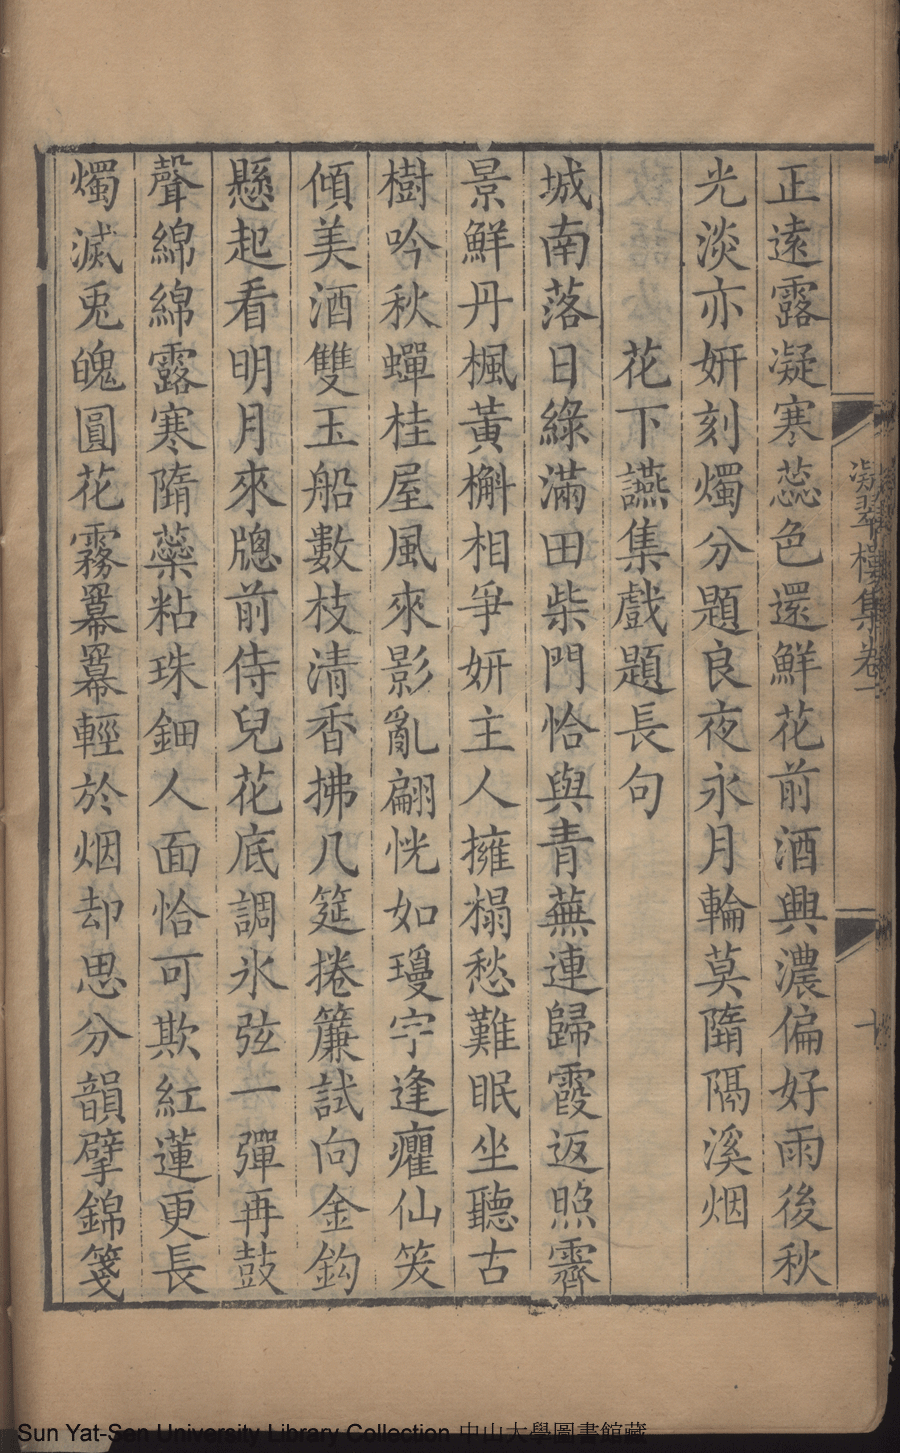 凝翠樓集卷一
十
正遠露凝寒蕊色還鮮花前酒興濃偏好雨後秋
光淡亦妍刻燭分題良夜永月輪莫隋隔溪烟
花下讌集戲題長句
城南落日綠滿田柴門恰與青蕪連歸霞返照霽
景鮮丹楓黃槲相爭妍主人擁榻愁難眠坐聽古
樹吟秋蟬桂屋風來影亂翩恍如瓊宇逢癯仙笑
傾美酒雙玉船數枝清香拂几筵捲簾試向金鈎
懸起看明月來牕前侍兒花底調氷弦一彈再鼓
聲綿綿露寒隋蘂粘珠鈿人面恰可欺紅蓮更長
燭滅兎魄圓花霧羃羃輕於烟却思分韻擘錦箋
Sun Yat-Sen University Library Collection 中山大學圖書館藏